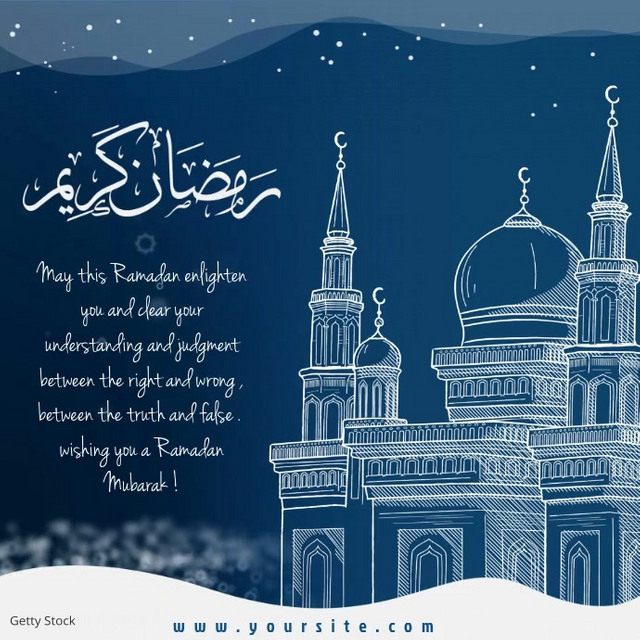 رمضان كريم
May this Ramadan enlighten
you and clear your
understanding and judgment
between the right and wrong ,
between the truth and false .
wishing you a Ramadan
Mubarak !
Getty Stock
www.yoursite.com